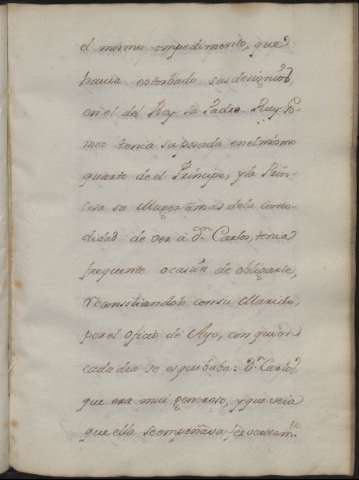 el mismo impedimento, que
havia estorbado sus designios
en el del Rey su Padre. Ruy Go-
mez tenia su posada en el mismo
quarto de el Principe, y la Prin-
cesa su Muger à mas de la como-
didad de ver à Dn. Carlos, tenia
frequente ocasion de obligarle,
reconsiliandolo con su Marido,
por el oficio de Ayo, con quien
cada dia se esquibaba: Dn. Carlos,
que era mui generoso, y que veia
que ella se empeñava